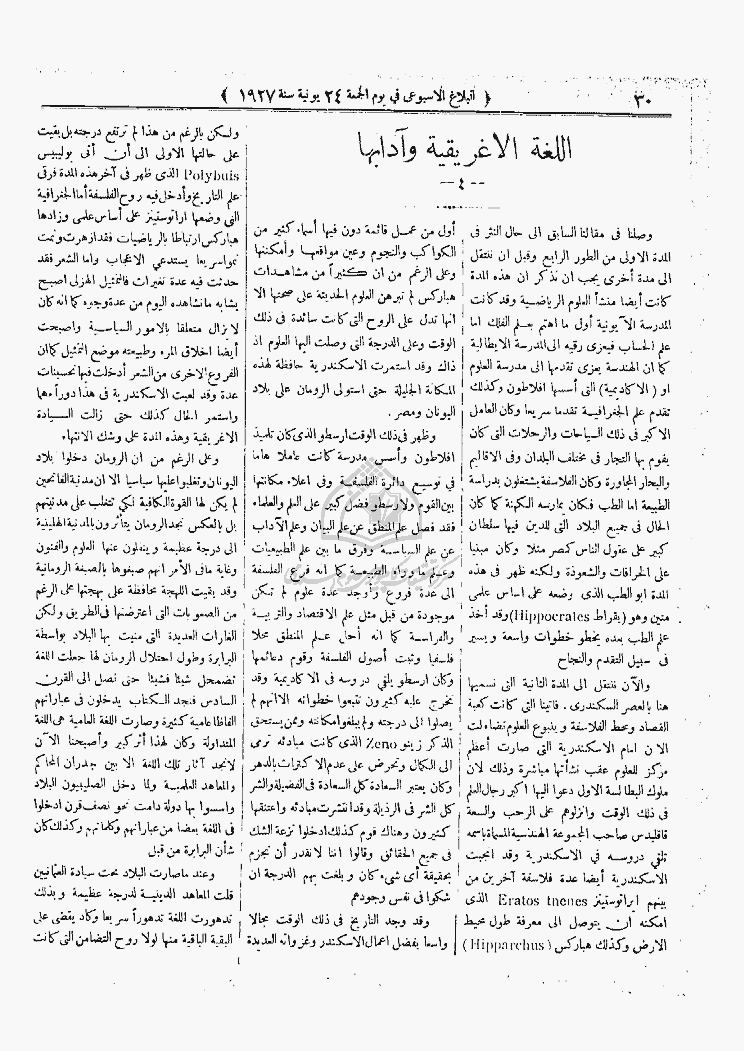 ٣٠
﴿ البلاغ الاسبوعى في يوم الجمعة ٢٤ يونية سنة ١٩٢٧ ﴾
اللغة الاغريقية وآدابها
— ٤ —
وصلنا فى مقالنا السابق الى حال النثر فى
المدة الاولى من الطور الرابع وقبل ان ننتقل
الى مدة أخرى يجب ان نذكر ان هذه المدة
كانت أيضا منشأ العلوم الرياضية وقد كانت
المدرسة الآيونية أول ما اهتم بعلم الفلك اما
علم الحساب فيعزى رقيه الى المدرسة الايطالية
كما ان الهندسة يعزى تقدمها الى مدرسة العلوم
او ( الاكاديمية ) التى أسسها افلاطون وكذلك
تقدم علم الجغرافية تقدما سريعا وكان العامل
الاكبر فى ذلك السياحات والرحلات التى كان
يقوم بها التجار فى مختلف البلدان وفى الاقاليم
والبحار المجاورة وكان الفلاسفة يشتغلون بدراسة
الطبيعة اما الطب فكان يمارسه الكهنة كما كان
الحال فى جميع البلاد التى للدين فيها سلطان
كبير على عقول الناس كمصر مثلا وكان مبنيا
على الخرافات والشعوذة ولكنه ظهر فى هذه
المدة ابو الطب الذى وضعه على اساس علمى
متين وهو (بقراط Hippocrates) وقد أخذ
علم الطب بعده يخطو خطوات واسعة ويسير
فى سبيل التقدم والنجاح
والآن ننتقل الى المدة الثانية التى نسميها
هنا بالعصر السكندرى . فاتينا التى كانت كعبة
القصاد ومحط الفلاسفة وينبوع العلوم تضاءلت
الان امام الاسكندرية التى صارت أعظم
مركز للعلوم عقب نشأتها مباشرة وذلك لان
ملوك البطالسة الاول دعوا اليها اكبر رجال العلم
فى ذلك الوقت وانزلوهم على الرحب والسعة
فاقليدس صاحب المجموعة الهندسية المسماة باسمه
تلقى دروسه فى الاسكندرية وقد انجبت
الاسكندرية أيضا عدة فلاسفة آخرين من
بينهم ايراتوستينز Eratos tnenes الذى
امكنه أن يتوصل الى معرفة طول محيط
الارض وكذلك هباركس (Hipparchus)
أول من عمل قائمة دون فيها أسماء كثير من
الكواكب والنجوم وعين مواقعها وأمكنتها
وعلى الرغم من ان كثيراً من مشاهدات
هباركس لم تبرهن العلوم الحديثة على صحتها الا
انها تدل على الروح التى كانت سائدة فى ذلك
الوقت وعلى الدرجة التى وصلت اليها العلوم اذ
ذاك وقد استمرت الاسكندرية حافظة لهذه
المكانة الجليلة حتى استولى الرومان على بلاد
اليونان ومصر .
وظهر فى ذلك الوقت ارسطو الذى كان تلميذ
افلاطون وأسس مدرسة كانت عاملا هاما
في توسيع دائرة الفلسفة وفى اعلاء مكانتها
بين القوم ولارسطو فضل كبير على العلم والعلماء
فقد فصل علم المنطق عن علم البيان وعلم الآداب
عن علم السياسة وفرق ما بين علم الطبيعيات
وعلم ماوراء الطبيعة كما انه فرع الفلسفة
الى عدة فروع وأوجد عدة علوم لم تكن
موجودة من قبل مثل علم الاقتصاد والتربية
والفراسة كما انه أحل علم المنطق محلا
فلسفيا وثبت أصول الفلسفة وقوم دعائمها
وكان ارسطو يلقى دروسه فى الاكاديمية وقد
تخرج عليه كثيرون تتبعوا خطواته الا انهم لم
يصلوا الى درجته ولم يبلغوا مكانته وممن يستحق
الذكر زينو Zeno الذى كانت مبادئه ترمى
الى الكمال وتحرض على عدم الاكتراث بالدهر
وكان يعتبر السعادة كل السعادة فى الفضيلة والشر
كل الشر فى الرذيلة وقد انتشرت مبادئه واعتنقها
كثيرون وهناك قوم كذلك ادخلوا نزعة الشك
فى جميع الحقائق وقالوا اننا لانقدر أن نجزم
بحقيقة أى شىء كان وبلغت بهم الدرجة ان
شكوا فى نفس وجودهم
وقد وجد التاريخ فى ذلك الوقت مجالا
واسعا بفضل اعمال الاسكندر وغزواته العديدة
ولكن بالرغم من هذا لم ترتفع درجته بل بقيت
على حالتها الاولى الى أن أتى بوليبيس
Polybuis الذى ظهر فى آخر هذه المدة فرقى
علم التاريخ وأدخل فيه روح الفلسفة أما الجغرافية
التى وضعها اراتوستينز على أساس علمى وزادها
هباركس ارتباطا بالرياضيات فقد ازهرت ونمت
نموا سريعا يستدعي الاعجاب واما الشعر فقد
حدثت فيه عدة تغيرات فالتمثيل الهزلى اصبح
يشابه مانشاهده اليوم من عدة وجوه كما انه كان
لا يزال متعلقا بالامور السياسية واصبحت
أيضا اخلاق المرء وطبيعته موضع التمثيل كما ان
الفروع الاخرى من الشعر أدخلت فيها تحسينات
عدة وقد لعبت الاسكندرية فى هذا دوراً هما
واستمر الحال كذلك حتى زالت السيادة
الاغريقية وهذه المدة على وشك الانتهاء
وعلى الرغم من ان الرومان دخلوا بلاد
اليونان وتغلبوا عليها سياسيا الا ان مدنية الفاتحين
لم يكن لها القوة الكافية لكى تتغلب على مدنيتهم
بل بالعكس نجد الرومان يتأثرون بالمدنية الهلينية
الى درجة عظيمة وينقلون عنها العلوم والفنون
وغاية مافى الأمر انهم صبغوها بالصبغة الرومانية
وقد بقيت اللهجة حافظة على بهجتها على الرغم
من الصعوبات التى اعترضتها فى الطريق ولكن
الغارات العديدة التى منيت بها البلاد بواسطة
البرابرة وطول احتلال الرومان لها جعلت اللغة
تضمحل شيئا فشيئا حتى نصل الى القرن
السادس فنجد الكتاب يدخلون فى عباراتهم
الفاظا عامية كثيرة وصارت اللغة العامية هى اللغة
المتداولة وكان لهذا أثر كبير وأصبحنا الآن
لانجد آثار تلك اللغة الا بين جدران المحاكم
والمعاهد العلمية ولما دخل الصليبيون البلاد
واسسوا بها دولة دامت نحو نصف قرن ادخلوا
فى اللغة بعضا من عباراتهم وكلماتهم وكذلك كان
شأن البرابرة من قبل
وعند ماصارت البلاد تحت سيادة العثمانيين
قلت المعاهد الدينية لدرجة عظيمة وبذلك
تدهورت اللغة تدهوراً سريعا وكاد يقضى على
البقية الباقية منها لولا روح التضامن التى كانت